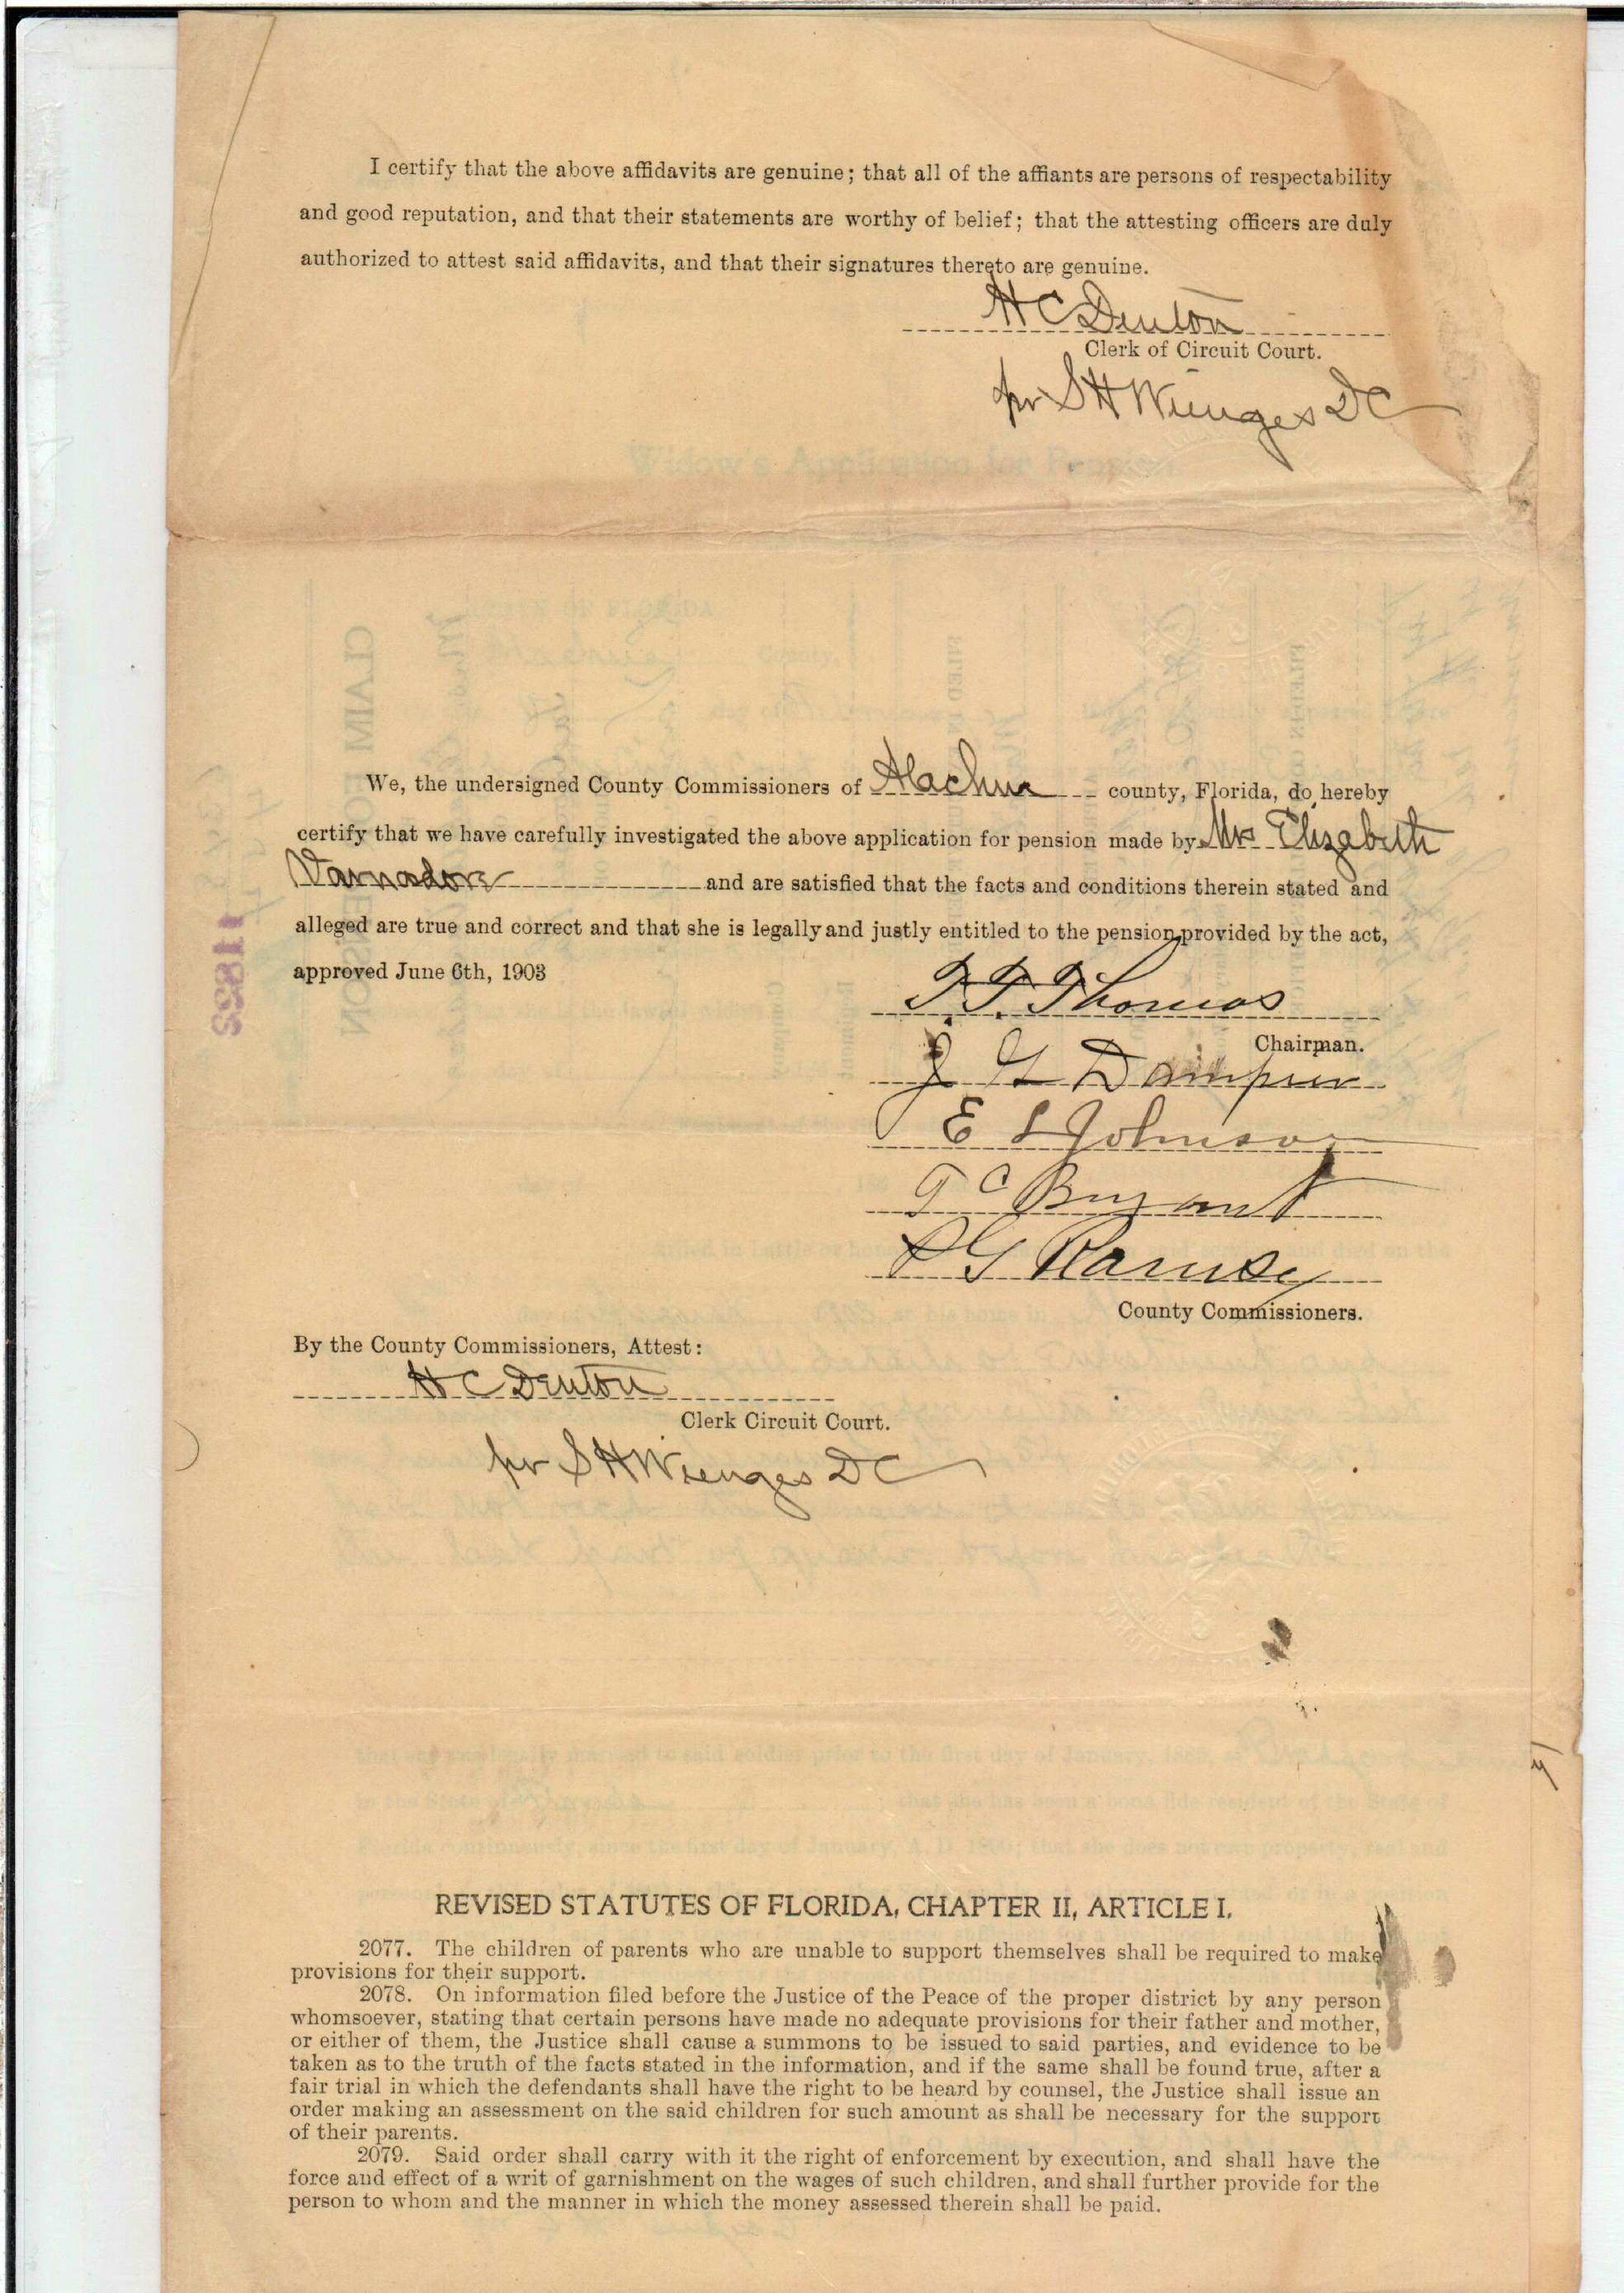 I certify that the above affidavits are genuine; that all of the affiants are persons of respectability
and good reputation, and that their statements are worthy of belief; that the attesting officers are duly
authorized to attest said affidavits, and that their signatures thereto are genuine.
H C Denton
Clerk of Circuit Court.
pr S H Wienges DC
Widow's Application for Pension.
We, the undersigned County Commissioners of Alachua county, Florida, do hereby
certify that we have carefully investigated the above application for pension made by Mrs Elizabeth
Varnadore and are satisfied that the facts and conditions therein stated and
alleged are true and correct and that she is legally and justly entitled to the pension provided by the act,
approved June 6th, 1903
T. T. Thomas
Chairman.
J G Dampier
E L Johnson
T C Bryant
P G Ramsey
County Commissioners.
By the County Commissioners, Attest:
H C Denton
Clerk Circuit Court.
pr S H Wienges DC
REVISED STATUTES OF FLORIDA, CHAPTER II, ARTICLE I.
2077. The children of parents who are unable to support themselves shall be required to make
provisions for their support.
2078. On information filed before the Justice of the Peace of the proper district by any person
whomsoever, stating that certain persons have made no adequate provisions for their father and mother,
or either of them, the Justice shall cause a summons to be issued to said parties, and evidence to be
taken as to the truth of the facts stated in the information, and if the same shall be found true, after a
fair trial in which the defendants shall have the right to be heard by counsel, the Justice shall issue an
order making an assessment on the said children for such amount as shall be necessary for the support
of their parents.
2079. Said order shall carry with it the right of enforcement by execution, and shall have the
force and effect of a writ of garnishment on the wages of such children, and shall further provide for the
person to whom and the manner in which the money assessed therein shall be paid.